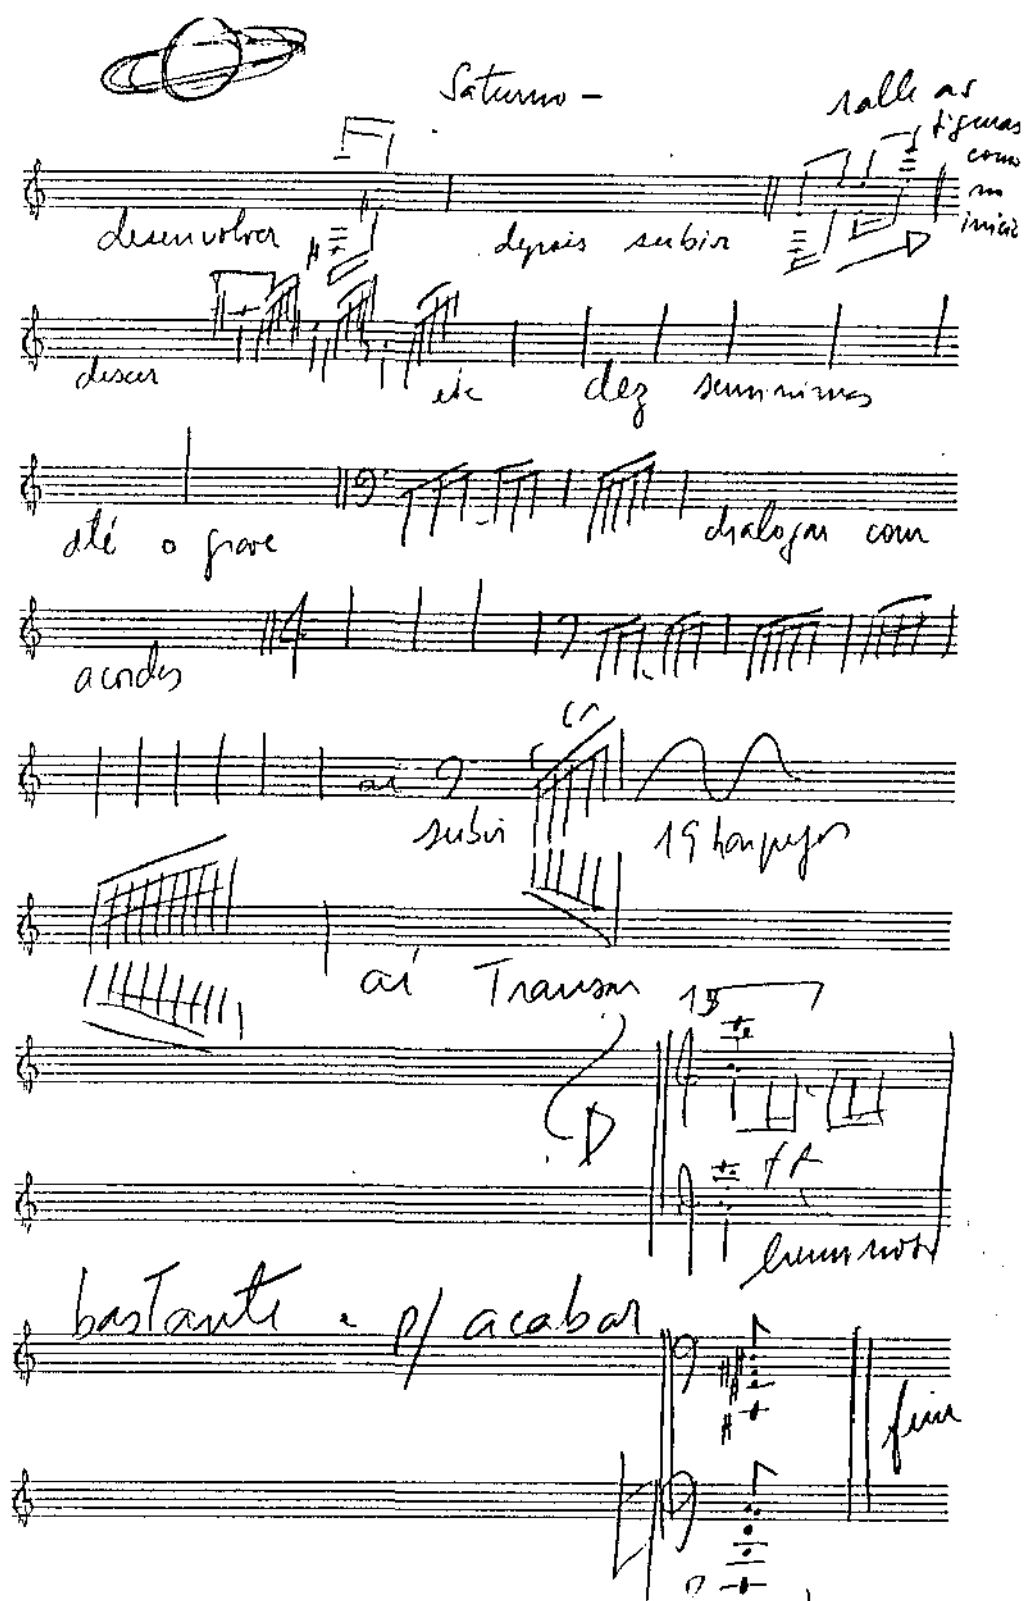 Saturno -
ralle as
figuras
como
no
inicio
desenvolver depois subir
descer etc dez semínimas
até o grave dialogar com
acordes
aí
subir 19 harpejos
aí Transar
15
luminoso
bastante e p/ acabar
fim